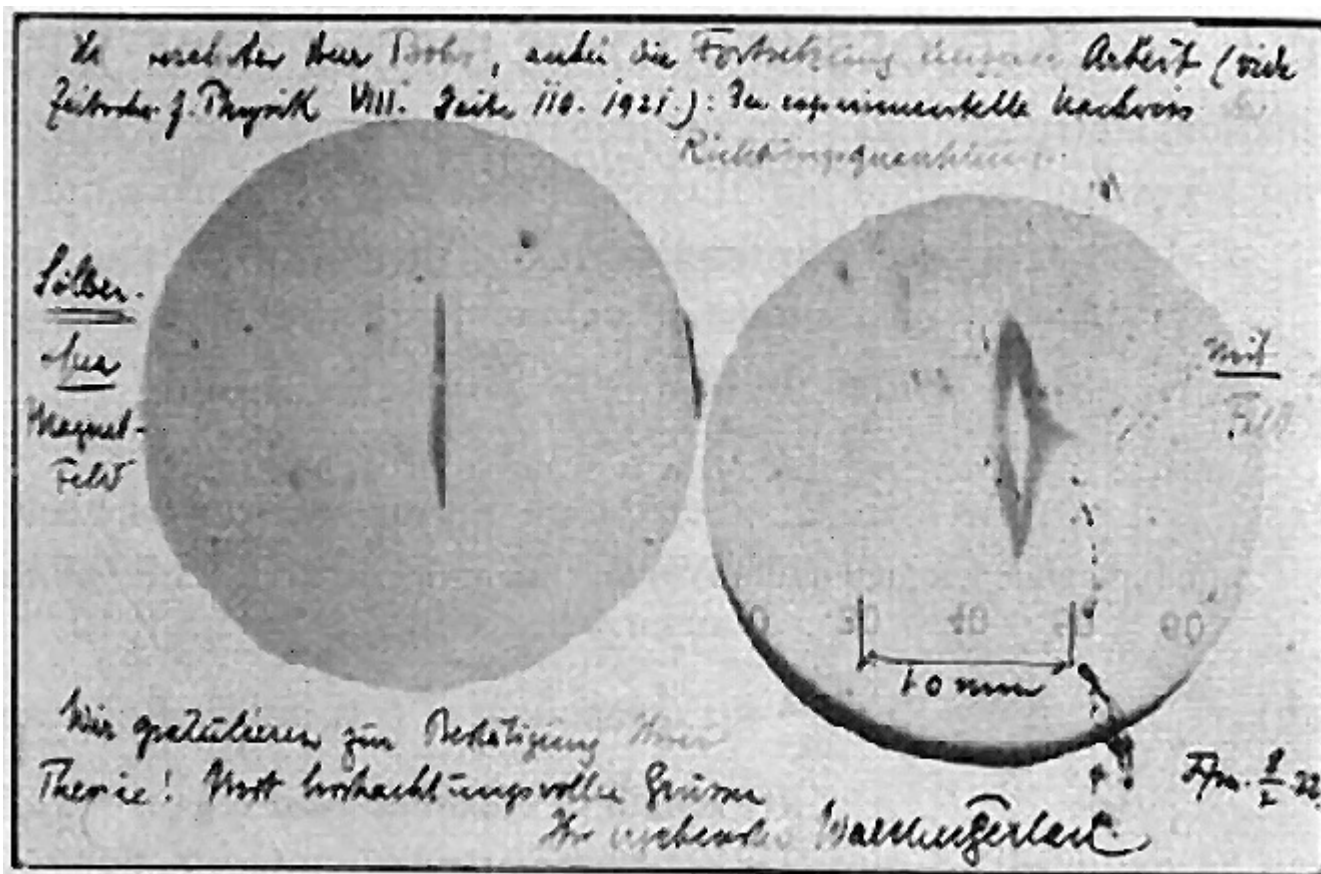 verehrter Herr Bohr, anbei die Fortsetzung unserer Arbeit (vide
Zeitschr. f. Physik VIII. Seite 110. 1921.): Der experimentelle Nachweis
Richtungsquantelung.
Silber.
ohne
Magnet-
Feld
mit
Feld
30 40 50 60
10 mm
Wir gratulieren zur Bestätigung Ihrer
Theorie! Mit hochachtungsvollen Grüssen
Ihr ergebenster Walther Gerlach.
Ffm. 8/2 22.